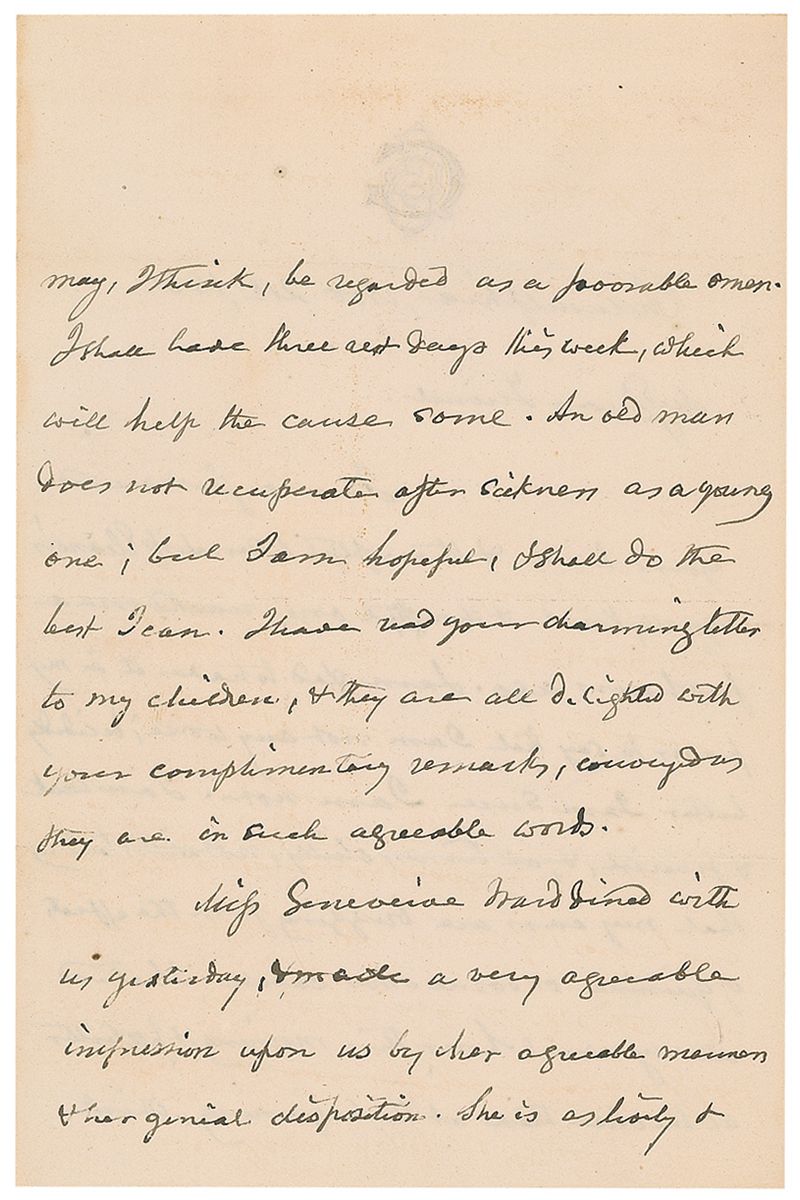 may, I think, be regarded as a favorable omen.
I shall have three rest days this week, which
will help the cause some. An old man
does not recuperate after sickness as a young
one; but I am hopeful, I shall do the
best I can. I have read your charming letter
to my children, & they are all delighted with
your complimentary remarks, conveyed as
they are in such agreeable words.
Miss Genevieve Ward dined with
us yesterday, & made a very agreeable
impression upon us by her agreeable manners
& her genial disposition. She is as lively &